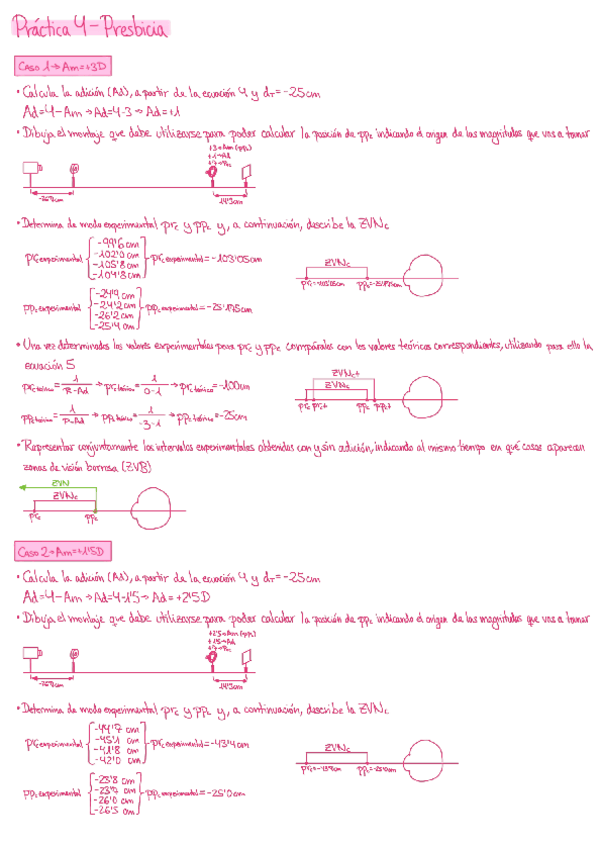 Práctica 4 - Presbicia
Caso 1 → Am = +3D
• Calcula la adición (Ad), a partir de la ecuación 4 y dT = -25cm
Ad = 4 - Am → Ad = 4-3 → Ad = +1
• Dibuja el montaje que debe utilizarse para poder calcular la posición de ppc indicando el origen de las magnitudes que vas a tomar
+3→Am (ppc)
+1→Ad
14'3cm
• Determina de modo experimental prc y ppc y, a continuación, describe la ZVNc
prc experimental [-99'6 cm -102'0 cm -105'8 cm -104'8 cm] prc experimental = -103'05cm
ZVNc
prc = -103'05cm ppc = -25'175cm
ppc experimental [-24'9 cm -24'2 cm -26'2 cm -25'4 cm] ppc experimental = -25'175cm
• Una vez determinados los valores experimentales para prc y ppc compáralos con los valores teóricos correspondientes, utilizando para ello la
ecuación 5
prc teórico = 1/R-Ad → prc teórico = 1/0-1 → prc teórico = -100cm
ZVNct
ZVNc
prc prct ppc ppct
ppc teórico = 1/P-Ad → ppc teórico = 1/-3-1 → ppc teórico = -25cm
• Representar conjuntamente los intervalos experimentales obtenidos con y sin adición, indicando al mismo tiempo en qué casos aparecen
zonas de visión borrosa (ZVB)
ZVN
ZVNc
prc ppc
Caso 2 → Am = +1'5D
• Calcula la adición (Ad), a partir de la ecuación 4 y dT = -25cm
Ad = 4 - Am → Ad = 4-1'5 → Ad = +2'5D
• Dibuja el montaje que debe utilizarse para poder calcular la posición de ppc indicando el origen de las magnitudes que vas a tomar
14'3cm
• Determina de modo experimental prc y ppc y, a continuación, describe la ZVNc
prc experimental [-44'7 cm -45'1 cm -41'8 cm -42'0 cm] prc experimental = -43'4cm
ZVNc
ppc = -25'0cm
ppc experimental [-25'8 cm -23'7 cm -26'0 cm -26'5 cm] ppc experimental = -25'0cm